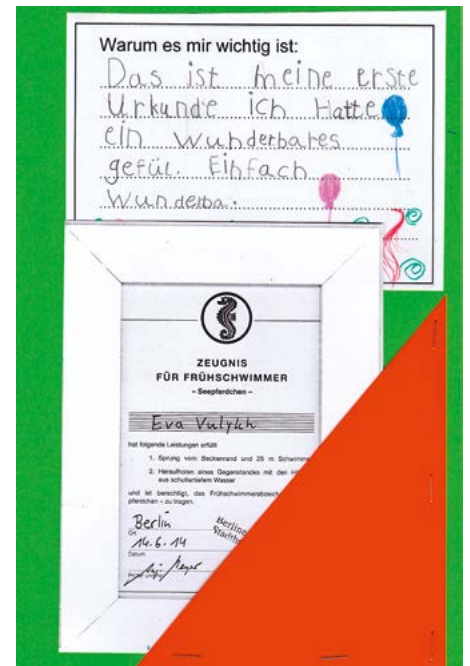 Warum es mir wichtig ist:
Das ist meine erste
Urkunde ich Hatte
ein wunderbares
gefül. Einfach
wunderba.
ZEUGNIS
FÜR FRÜHSCHWIMMER
- Seepferdchen -
Eva
hat folgende Leistungen erfüllt
1. Sprung vom Beckenrand und 25 m Schwimm
2. Heraufholen eines Gegenstandes mit den
aus schultertiefem Wasser
und ist berechtigt, das Frühschwimmerabzeich
pferdchen – zu tragen.
Berlin
Ort
14.6.14
Datum